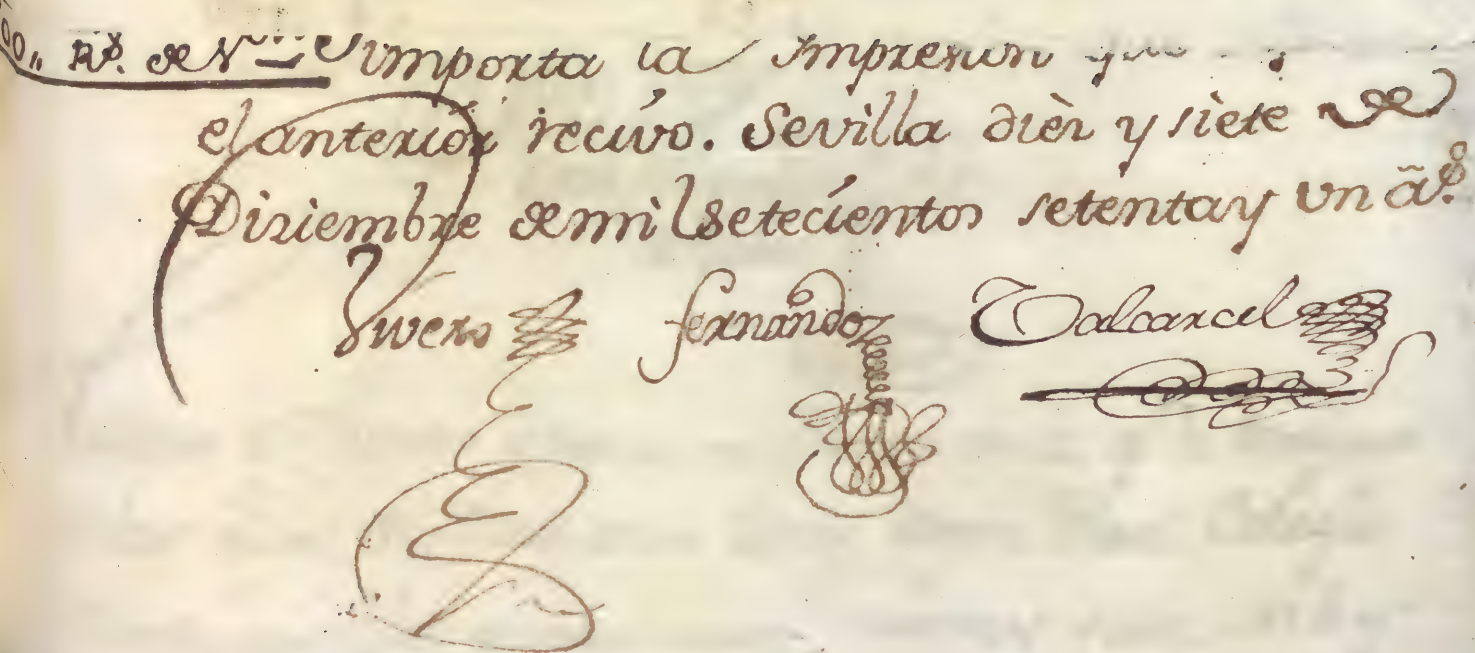 00,, Rs. de Von importa la Impresion que
el anterior recivo. Sevilla dièz y siete de
Diziembre de mil setecientos setenta y un as.
Vivero fernandez Valcarcel